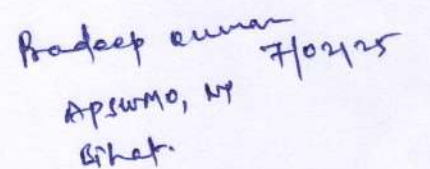 Pradeep Kumar
7/02/25
APSWMO, NP
Bihat.